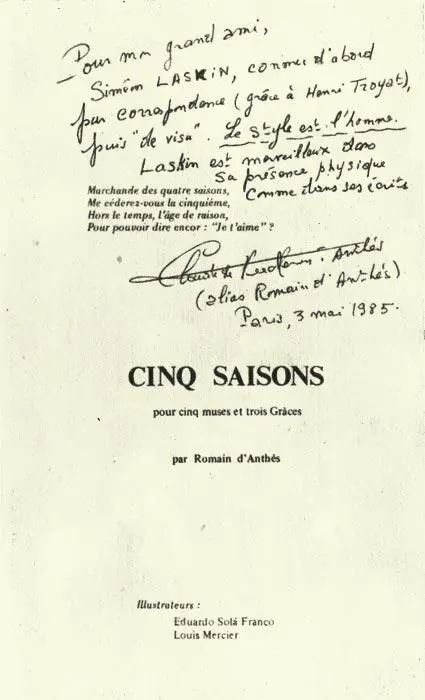 Pour mon grand ami,
Siméon LASKIN, connu d'abord
par correspondance (grâce à Henri Troyat),
puis "de visu". Le style est l'homme.
Laskin est merveilleux dans
sa présence physique
comme dans ses écrits
Marchande des quatre saisons,
Me céderez-vous la cinquième,
Hors le temps, l'âge de raison,
Pour pouvoir dire encor : "Je t'aime" ?
Anthès
(alias Romain d'Anthès)
Paris, 3 mai 1985.
CINQ SAISONS
pour cinq muses et trois Grâces
par Romain d'Anthès
Illustrateurs :
Eduardo Solá Franco
Louis Mercier